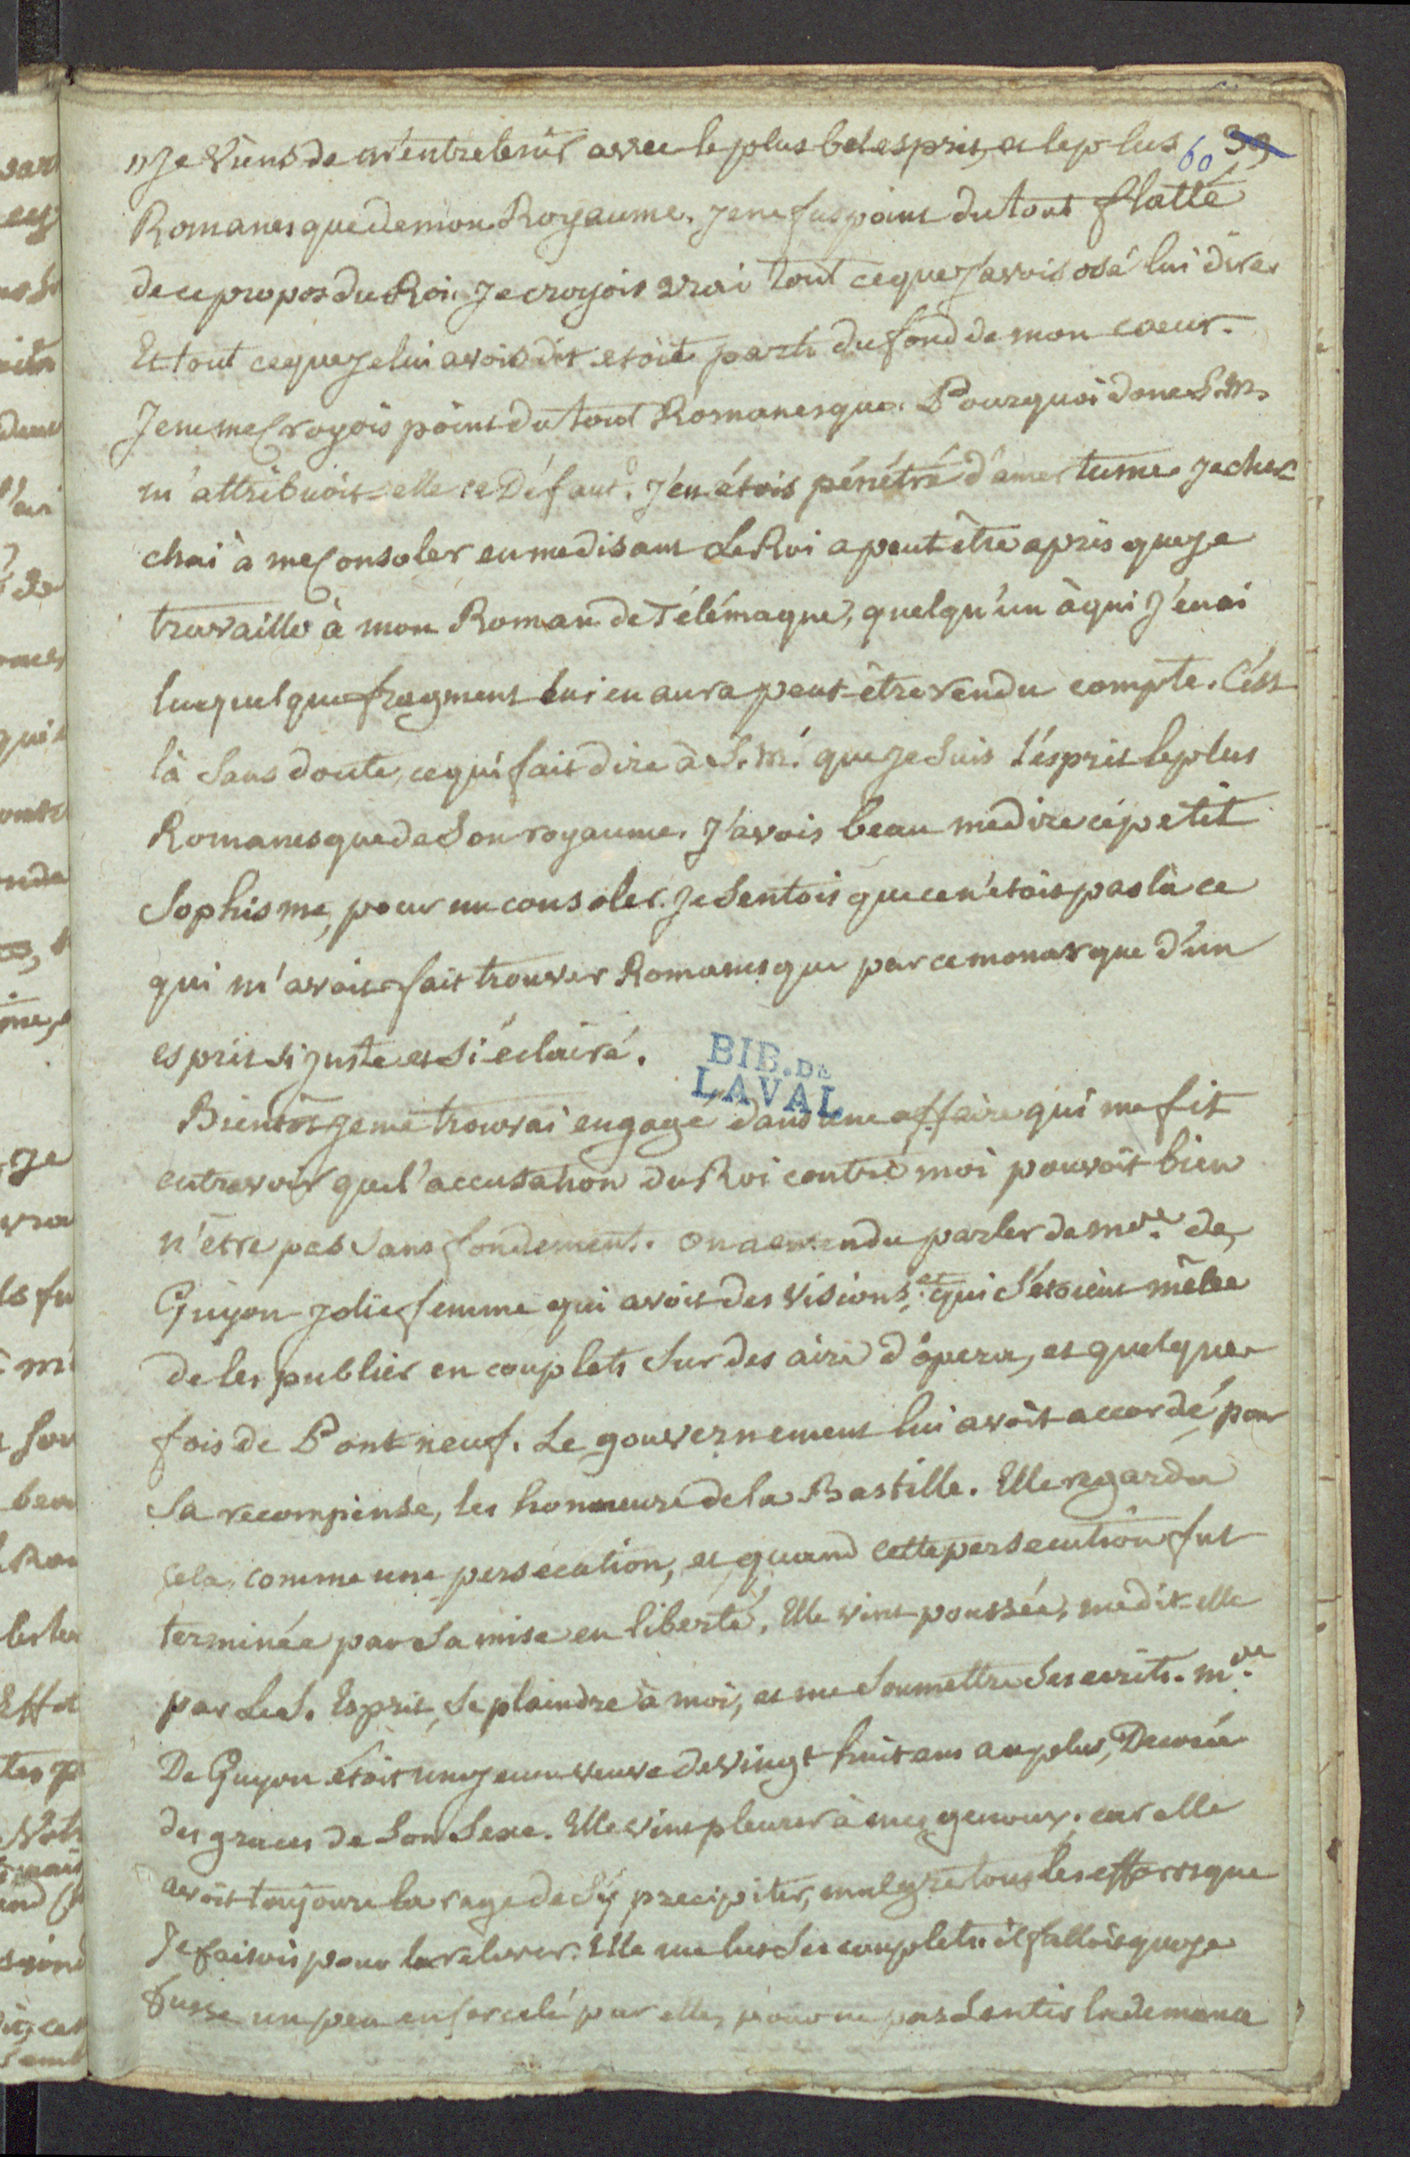 "Je viens de m'entretenir avec le plus bel esprit, et le plus 60 39
Romanesque de mon Royaume. Je ne fus point du tout flatté
de ce propos du Roi. Je croyois vrai tout ce que J'avois osé lui dire.
Et tout ce que Je lui avois dit etoit parti du fond de mon coeur.
Je ne me Croyois point du tout Romanesque. Pourquoi donc S. M.
m'attribuoit-elle ce Défaut? J'en étois pénétré d'amertume. Je cher
chai à me Consoler en me disant Le Roi a peut-être apris que je
travaille à mon Roman de Télémaque, quelqu'un à qui J'en ai
lu quelque fragment lui en aura peut-être rendu compte. C'est
là Sans doute, ce qui fait dire à S. M. que Je Suis l'esprit le plus
Romanesque de Son royaume. J'avois beau me dire ce petit
Sophisme, pour me consoler. Je Sentois que ce n'etoit pas là ce
qui m'avoit fait trouver Romanesque par ce monarque d'un
esprit Si Juste et Si éclairé.
BIB. DE
LAVAL
Bientôt Je me trouvai engagé dans une affaire qui me fit
entrevoir que l'accusation du Roi contre moi pouvoit bien
n'être pas Sans fondement. On a entendu parler de Mde. de
Guyon Jolie femme qui avoit des visions, et qui S'etoient mêlée
de les publier en couplets Sur des airs d'opera, et quelque
fois de Pont neuf. Le gouvernement lui avoit accordé pour
Sa recompense, les honneurs de la Bastille. Elle regarda
cela comme une persecution, et quand cette persecution fut
terminée par Sa mise en liberté, Elle vint poussée, me dit-elle
par Le S. Esprit, Se plaindre à moi, et me Soumettre Ses ecrits. Mde.
De Guyon étoit une jeune veuve de vingt huit ans au plus, Decorée
des graces de Son Sexe. Elle vint pleurer à mes genoux; car elle
avoit toujours la rage de S'y precipiter, malgré tous les efforts que
Je faisois pour la relever. Elle me lut Ses couplets: il falloit que je
fusse un peu ensorcelé par elle, pour ne pas Sentir la demence